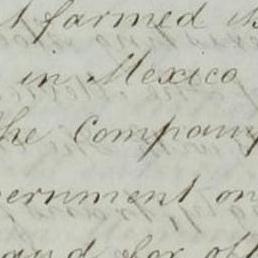 farmed
in Mexico
the Company
ernment on
and for